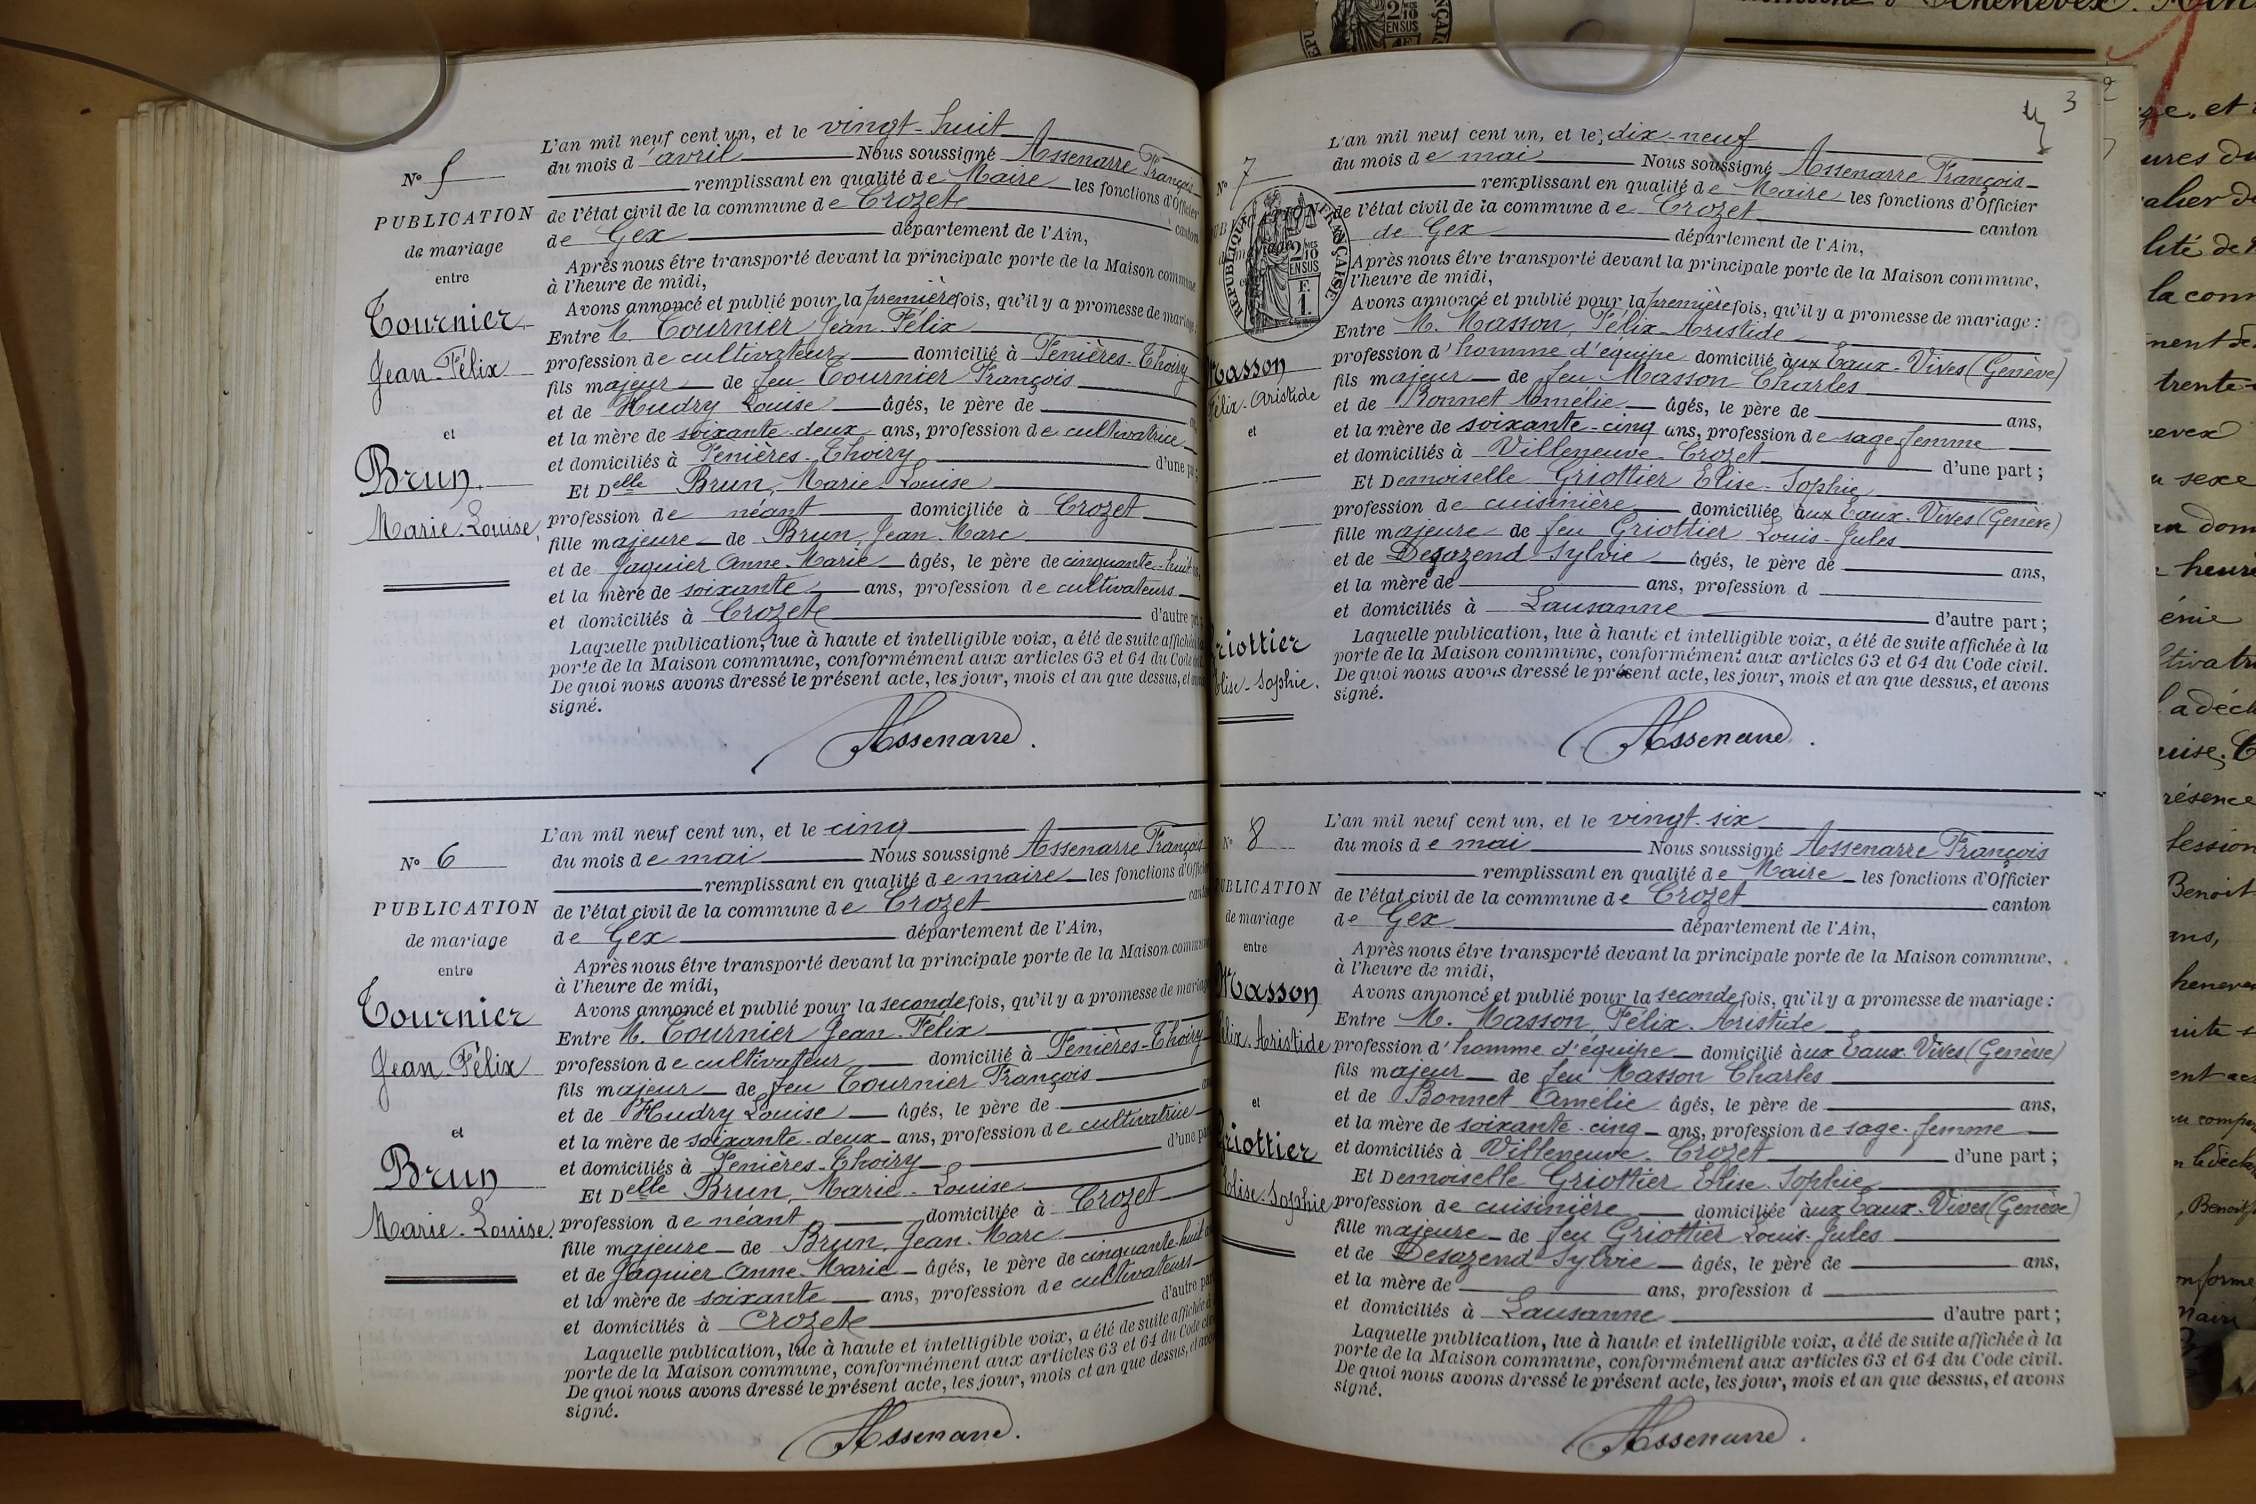 L'an mil neuf cent un, et le vingt-huit
du mois d'avril Nous soussigné Assenarre François
remplissant en qualité de Maire les fonctions d'Officier
de l'état civil de la commune de Crozet canton
de Gex département de l'Ain,
Après nous être transporté devant la principale porte de la Maison commune
à l'heure de midi,
Avons annoncé et publié pour la première fois, qu'il y a promesse de mariage
Entre M. Tournier Jean-Félix
profession de cultivateur domicilié à Fenières-Thoiry
fils majeur de feu Tournier François
et de Hudry Louise âgés, le père de
et la mère de soixante-deux ans, profession de cultivatrice
et domiciliés à Fenières-Thoiry d'une
Et Delle Brun, Marie-Louise
profession de néant domiciliée à Crozet
fille majeure de Brun, Jean-Marc
et de Jaquier Anne-Marie âgés, le père de cinquante-huit
et la mère de soixante ans, profession de cultivateurs
et domiciliés à Crozet d'autre
Laquelle publication, lue à haute et intelligible voix, a été de suite affichée
porte de la Maison commune, conformément aux articles 63 et 64 du Code
De quoi nous avons dressé le présent acte, les jour, mois et an que dessus, et
signé.
Assenarre.
N° 5
PUBLICATION
de mariage
entre
Tournier
Jean-Félix
et
Brun
Marie-Louise
L'an mil neuf cent un, et le cinq
du mois de mai Nous soussigné Assenarre François
remplissant en qualité de maire les fonctions d'Officier
de l'état civil de la commune de Crozet
de Gex département de l'Ain,
Après nous être transporté devant la principale porte de la Maison commune
à l'heure de midi,
Avons annoncé et publié pour la seconde fois, qu'il y a promesse de mariage
Entre M. Tournier Jean-Félix
profession de cultivateur domicilié à Fenières-Thoiry
fils majeur de feu Tournier François
et de Hudry Louise âgés, le père de
et la mère de soixante-deux ans, profession de cultivatrice
et domiciliés à Fenières-Thoiry d'une
Et Delle Brun, Marie-Louise
profession de néant domiciliée à Crozet
fille majeure de Brun, Jean-Marc
et de Jaquier Anne-Marie âgés, le père de cinquante-huit
et la mère de soixante ans, profession de cultivateurs
et domiciliés à Crozet d'autre
Laquelle publication, lue à haute et intelligible voix, a été de suite affichée à
porte de la Maison commune, conformément aux articles 63 et 64 du Code
De quoi nous avons dressé le présent acte, les jour, mois et an que dessus, et
signé.
Assenarre.
N° 6
PUBLICATION
de mariage
entre
Tournier
Jean-Félix
et
Brun
Marie-Louise.
3
L'an mil neuf cent un, et le dix-neuf
du mois de mai Nous soussigné Assenarre François
remplissant en qualité de Maire les fonctions d'Officier
de l'état civil de la commune de Crozet canton
de Gex département de l'Ain,
Après nous être transporté devant la principale porte de la Maison commune,
l'heure de midi,
Avons annoncé et publié pour la première fois, qu'il y a promesse de mariage :
Entre M. Masson, Félix-Aristide
profession d'homme d'équipe domicilié aux Eaux-Vives (Genève)
fils majeur de feu Masson Charles
et de Bonnet Amélie âgés, le père de ans,
et la mère de soixante-cinq ans, profession de sage-femme
et domiciliés à Villeneuve-Crozet d'une part ;
Et Demoiselle Griottier Elise-Sophie
profession de cuisinière domiciliée aux Eaux-Vives (Genève)
fille majeure de feu Griottier Louis-Jules
et de Desozend Sylvie âgés, le père de ans,
et la mère de ans, profession d
et domiciliés à Lausanne d'autre part ;
Laquelle publication, lue à haute et intelligible voix, a été de suite affichée à la
porte de la Maison commune, conformément aux articles 63 et 64 du Code civil.
De quoi nous avons dressé le présent acte, les jour, mois et an que dessus, et avons
signé.
Assenarre.
N° 7
RÉPUBLIQUE FRANÇAISE
2/10
EN SUS
F.
1.
Masson
Félix-Aristide
et
Griottier
Elise-Sophie.
L'an mil neuf cent un, et le vingt-six
du mois de mai Nous soussigné Assenarre François
remplissant en qualité de Maire les fonctions d'Officier
de l'état civil de la commune de Crozet canton
de Gex département de l'Ain,
Après nous être transporté devant la principale porte de la Maison commune,
à l'heure de midi,
Avons annoncé et publié pour la seconde fois, qu'il y a promesse de mariage :
Entre M. Masson, Félix-Aristide
profession d'homme d'équipe domicilié aux Eaux-Vives (Genève)
fils majeur de feu Masson Charles
et de Bonnet Amélie âgés, le père de ans,
et la mère de soixante-cinq ans, profession de sage-femme
et domiciliés à Villeneuve-Crozet d'une part ;
Et Demoiselle Griottier Elise-Sophie
profession de cuisinière domiciliée aux Eaux-Vives (Genève)
fille majeure de feu Griottier Louis-Jules
et de Desozend Sylvie âgés, le père de ans,
et la mère de ans, profession d
et domiciliés à Lausanne d'autre part ;
Laquelle publication, lue à haute et intelligible voix, a été de suite affichée à la
porte de la Maison commune, conformément aux articles 63 et 64 du Code civil.
De quoi nous avons dressé le présent acte, les jour, mois et an que dessus, et avons
signé.
Assenarre.
N° 8
PUBLICATION
de mariage
entre
Masson
Félix-Aristide
et
Griottier
Elise-Sophie